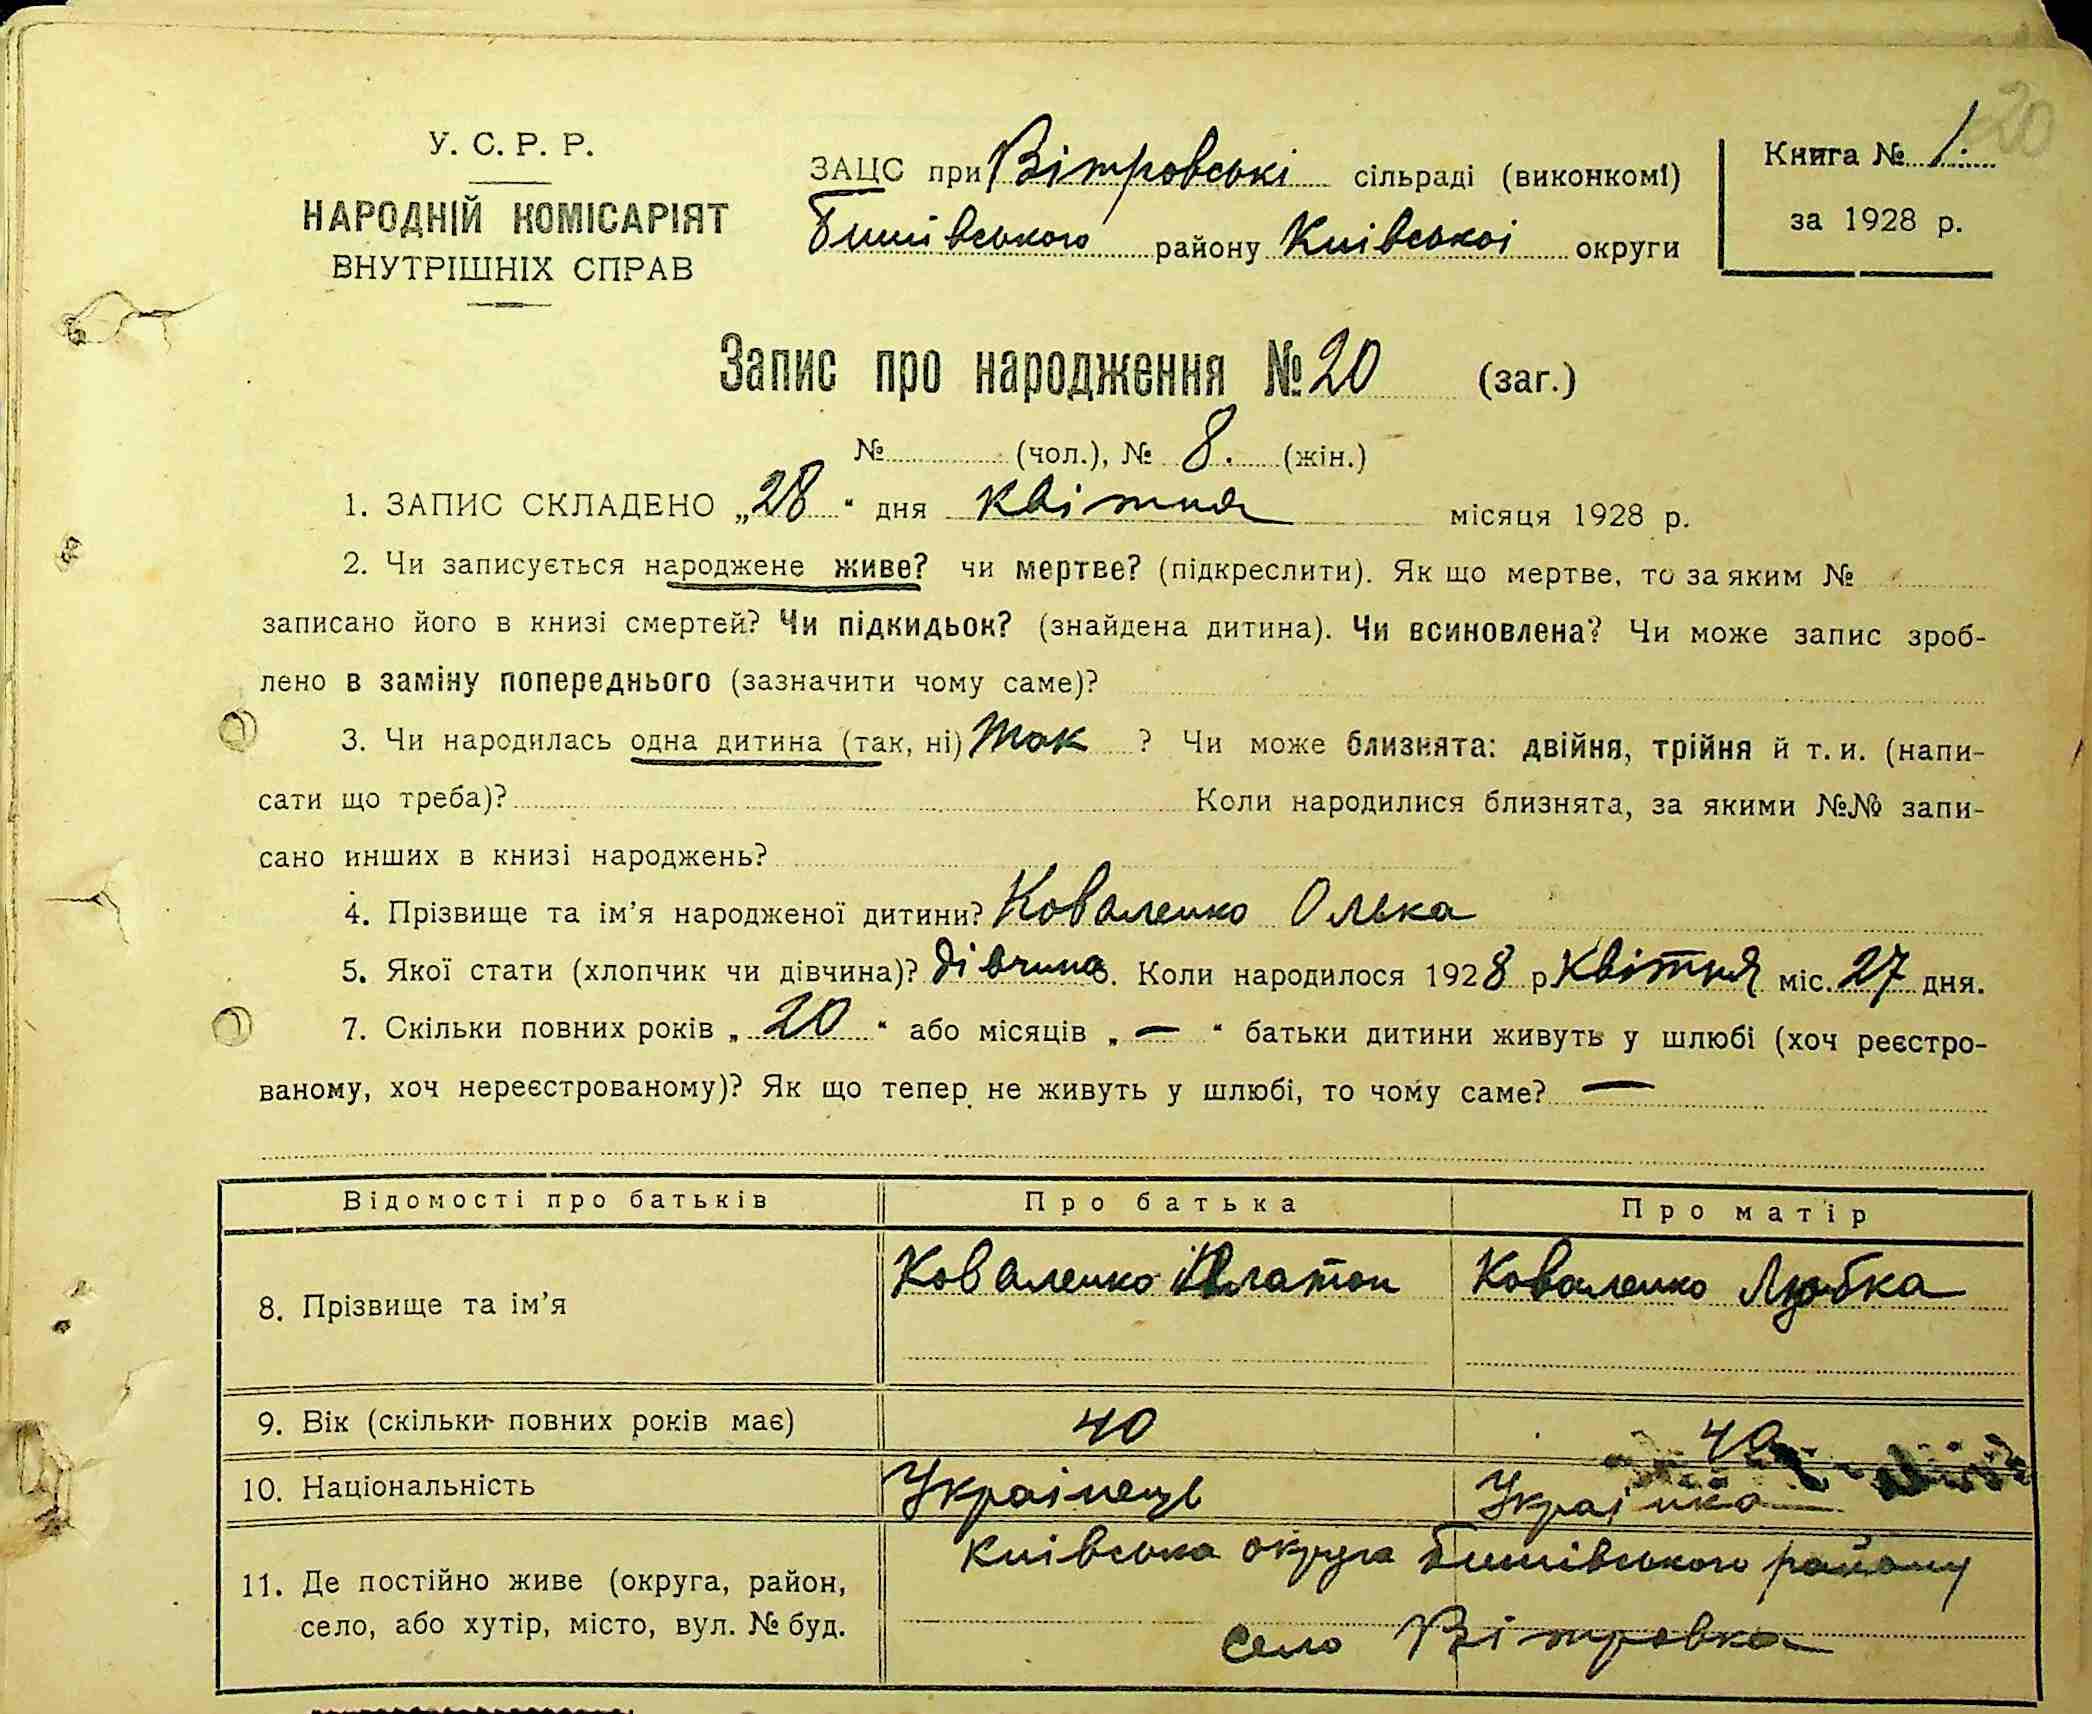 20
У. С. Р. Р.
НАРОДНІЙ КОМІСАРІЯТ
ВНУТРІШНІХ СПРАВ
ЗАЦС при Вітровські сільраді (виконкомі)
Бишівського району Київської округи
Книга № 1.
за 1928 р.
Запис про народження № 20 (заг.)
№ (чол.), № 8. (жін.)
1. ЗАПИС СКЛАДЕНО „28" дня квітня місяця 1928 р.
2. Чи записується народжене живе? чи мертве? (підкреслити). Як що мертве, то за яким №
записано його в книзі смертей? Чи підкидьок? (знайдена дитина). Чи всиновлена? Чи може запис зроб-
лено в заміну попереднього (зазначити чому саме)?
3. Чи народилась одна дитина (так, ні) так ? Чи може близнята: двійня, трійня й т. и. (напи-
сати що треба)? Коли народилися близнята, за якими №№ запи-
сано инших в книзі народжень?
4. Прізвище та ім'я народженої дитини? Коваленко Олька
5. Якої стати (хлопчик чи дівчина)? дівчина. Коли народилося 1928 р. Квітня міс. 27 дня.
7. Скільки повних років „20" або місяців „—" батьки дитини живуть у шлюбі (хоч реєстро-
ваному, хоч нереєстрованому)? Як що тепер не живуть у шлюбі, то чому саме? —
Відомості про батьків Про батька Про матір
8. Прізвище та ім'я Коваленко Платон Коваленко Любка
9. Вік (скільки повних років має) 40 40
10. Національність Українець Українка
11. Де постійно живе (округа, район,
село, або хутір, місто, вул. № буд.
Київська округа Бишівського району
село Вітровка